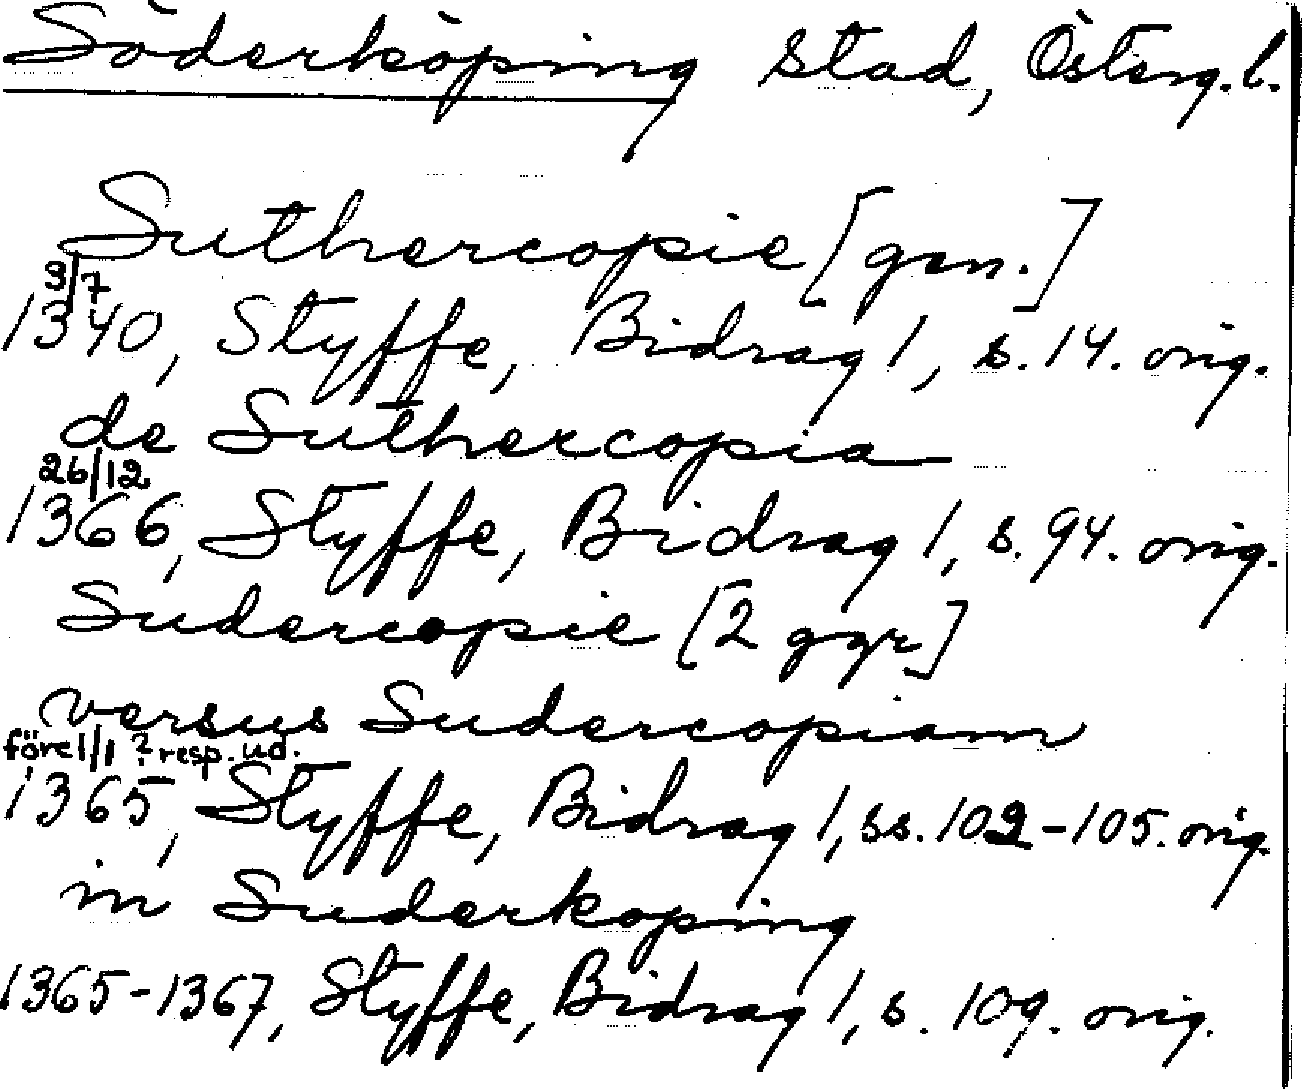 Söderköping stad, Österg.l.
Suthercopie [gen.]
9/7
1340, Styffe, Bidrag 1, s. 14. orig.
de Suthercopia
26/12
1366, Styffe, Bidrag 1, s. 94. orig.
Sudercopie [2 ggr]
versus Sudercopiam
före 1/1 ? resp. ud.
1365, Styffe, Bidrag 1, ss. 102-105. orig.
in Suderkoping
1365-1367, Styffe, Bidrag 1, s. 109. orig.